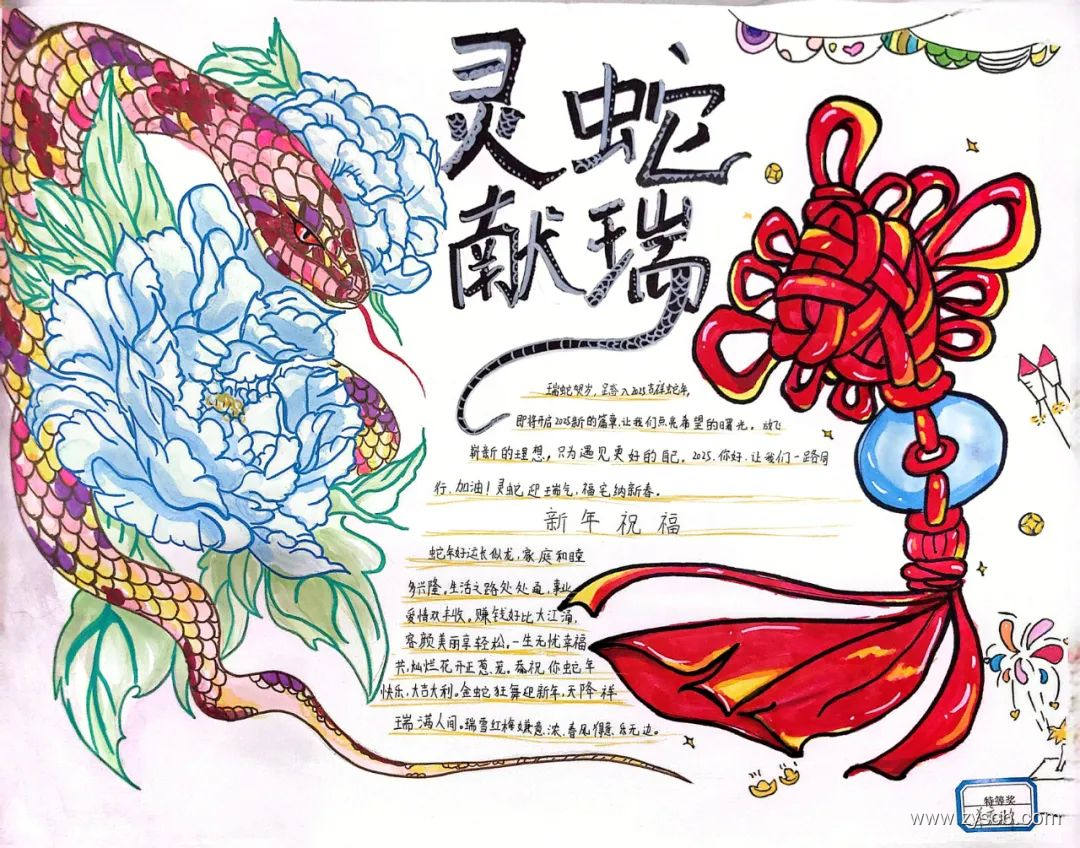 灵蛇
献瑞
瑞蛇贺岁，踏入2025吉祥蛇年，
即将开启2025新的篇章，让我们点亮希望的曙光，放飞
崭新的理想，只为遇见更好的自己，2025，你好，让我们一路同
行，加油！灵蛇迎瑞气，福宅纳新春。
新年祝福
蛇年好运长似龙，家庭和睦
多兴隆。生活之路处处通，事业
爱情双丰收。赚钱好比大江涌，
容颜美丽享轻松，一生无忧幸福
共，灿烂花开正葱茏，恭祝你蛇年
快乐，大吉大利。金蛇狂舞迎新年，天降祥
瑞满人间。瑞雪红梅嫌意浓，春风得意乐无边。
特等奖